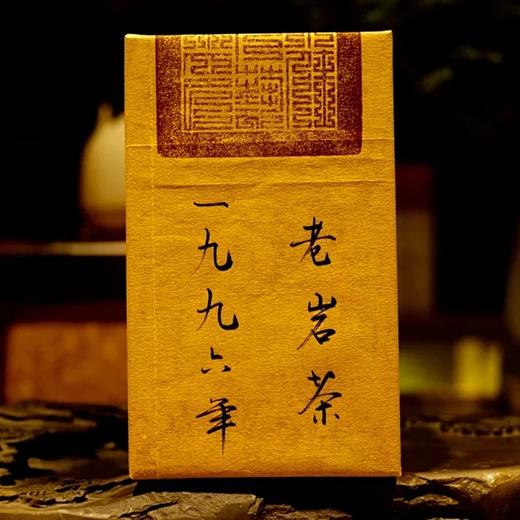 老岩茶
一九九六年